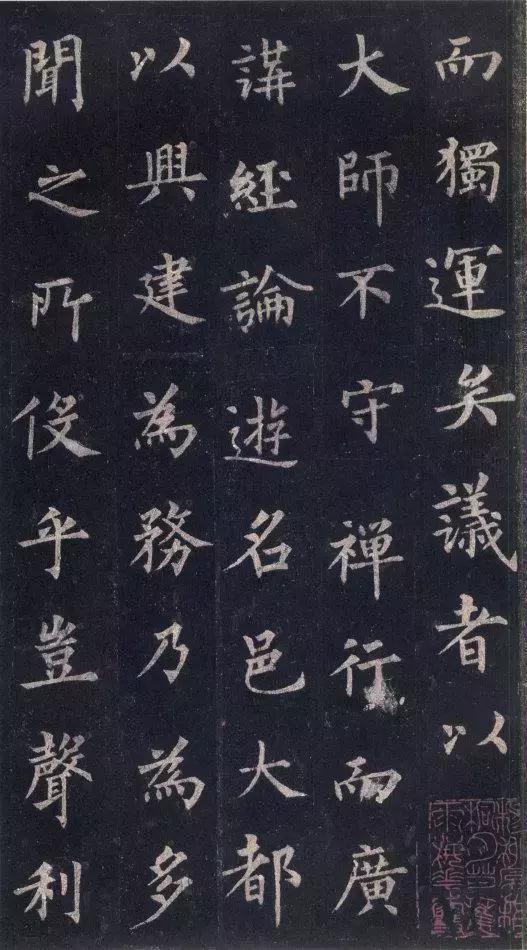 而獨運矣議者以
大師不守禪行而廣
講經論遊名邑大都
以興建為務乃為多
聞之所伇乎豈聲利